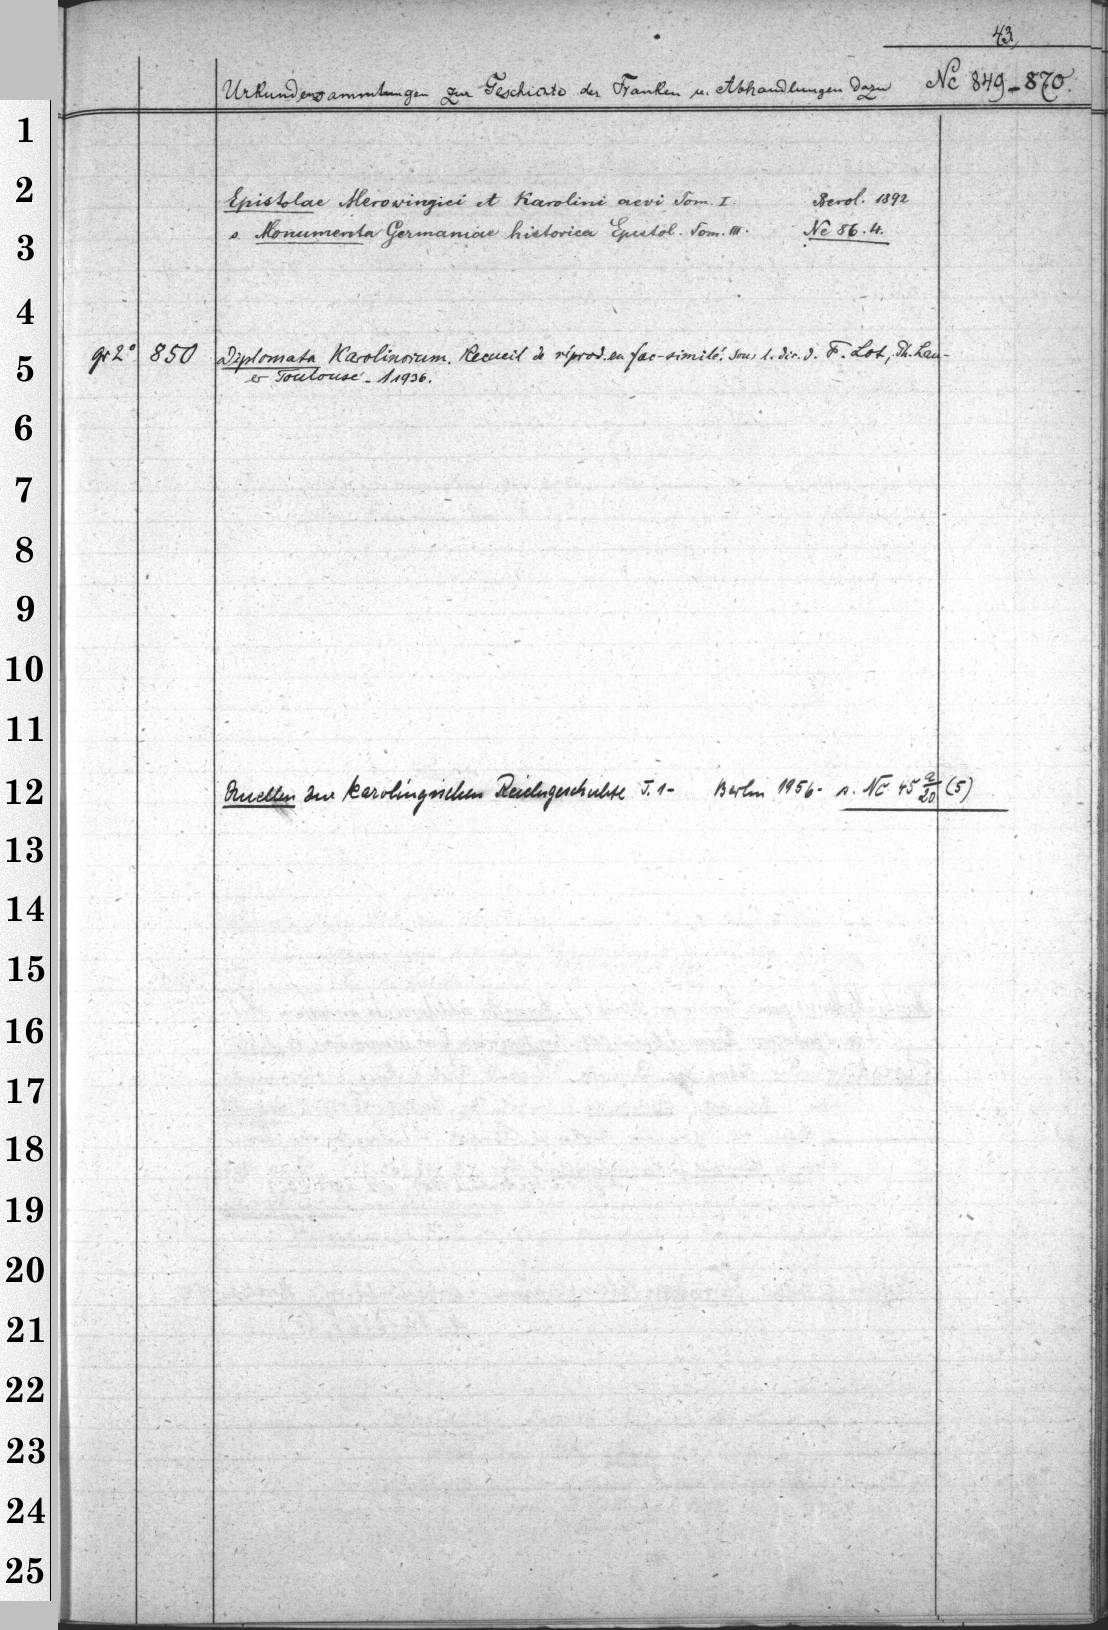 43
Urkundensammlungen zur Geschichte der Franken u. Abhandlungen dazu Nc 849-870.
1
2 Epistolae Merowingici et Karolini aevi Tom. I. Berol. 1892
3 s. Monumenta Germaniae historica Epistol. Tom. III. Nc 86.4.
4
5 gr 2° 850 Diplomata Karolinorum. Recueil de réprod. en fac-similé. Sous l. dir. d. F. Lot, Ph. Lau-
er Toulouse - 1 1936.
6
7
8
9
10
11
12 Quellen zur karolingischen Reichsgeschichte T. 1- Berlin 1956- s. Nc 45 a/20 (5)
13
14
15
16
17
18
19
20
21
22
23
24
25